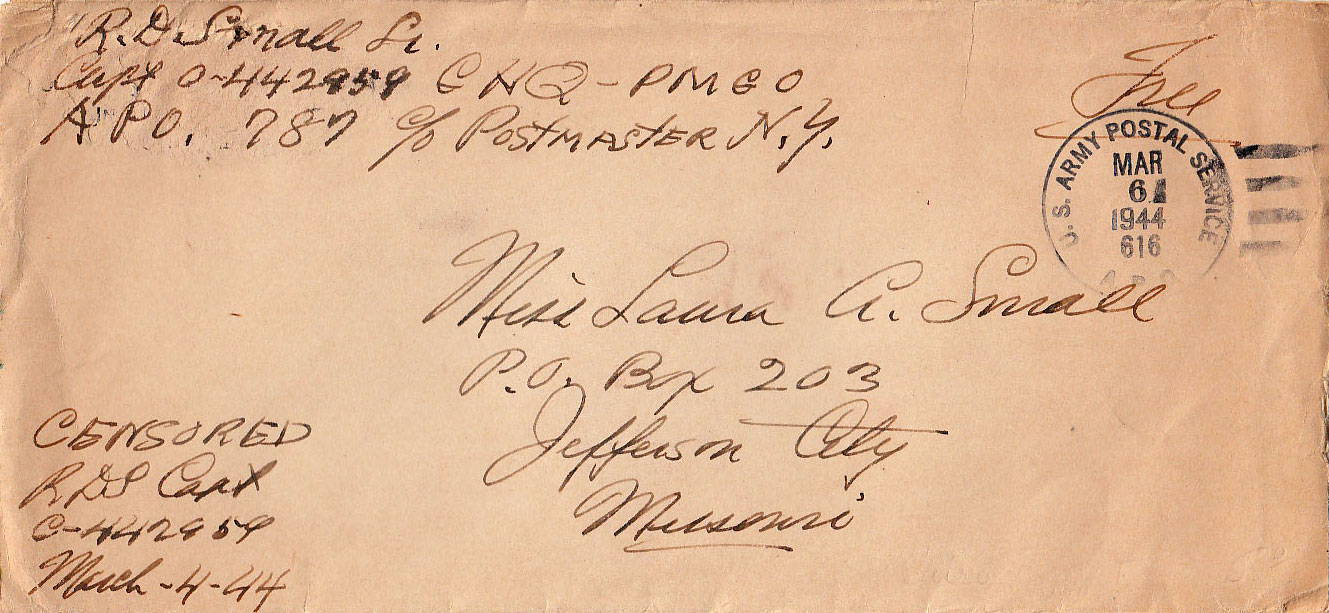 R. D. Small Sr.
Capt O-442959 GHQ-PMGO
A P O. 787 c/o POSTMASTER N.Y.
Free
U. S. ARMY POSTAL SERVICE
MAR
6
1944
616
Miss Laura A. Small
P.O. Box 203
Jefferson City
Missouri
CENSORED
RDS Capt
O-442959
March-4-44